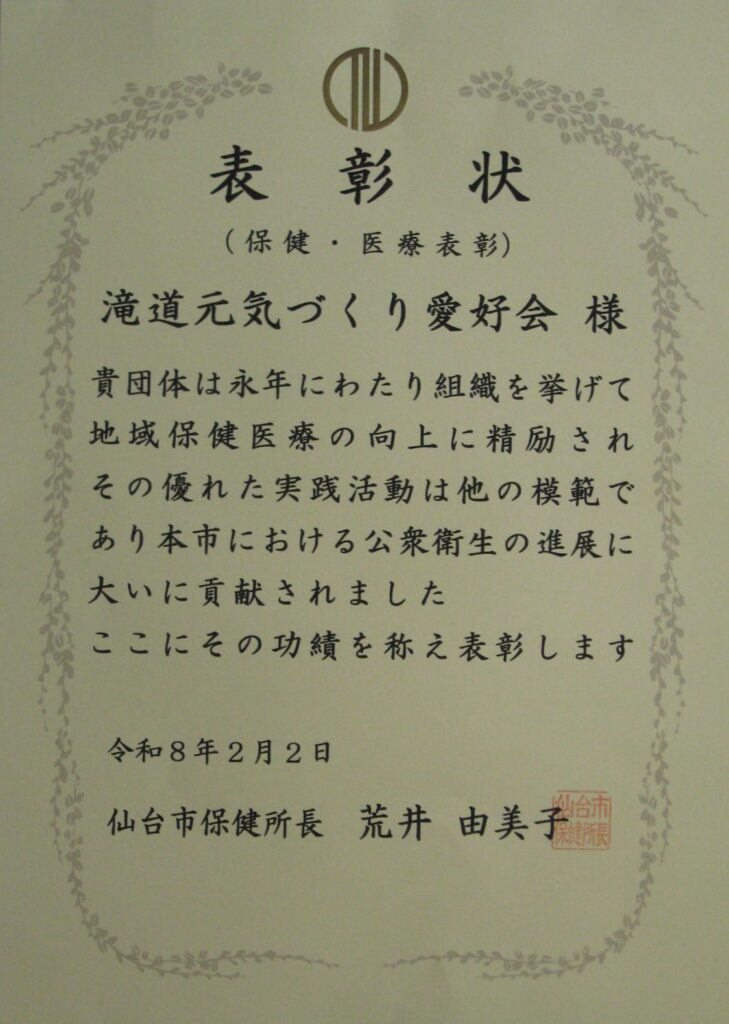 表彰状
(保健・医療表彰)
滝道元気づくり愛好会 様
貴団体は永年にわたり組織を挙げて
地域保健医療の向上に精励され
その優れた実践活動は他の模範で
あり本市における公衆衛生の進展に
大いに貢献されました
ここにその功績を称え表彰します
令和8年2月2日
仙台市保健所長 荒井 由美子
仙台市
保健所長